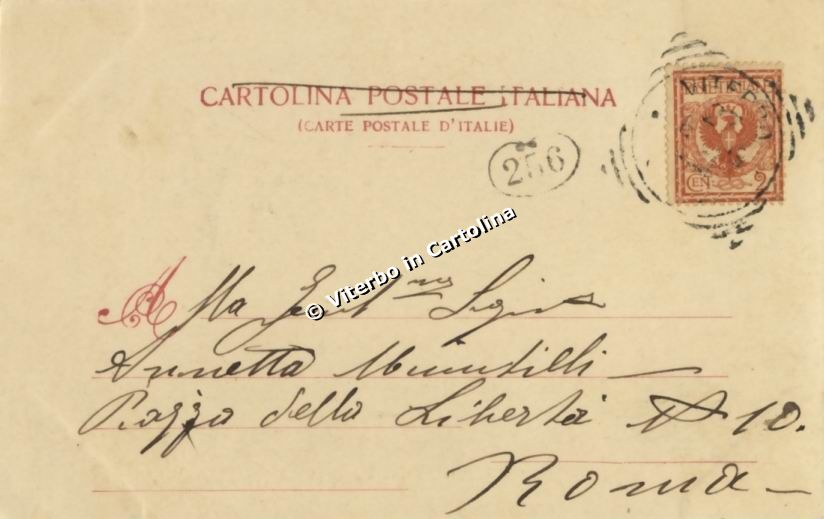 CARTOLINA POSTALE ITALIANA
(CARTE POSTALE D'ITALIE)
256
VITERBO
© Viterbo in Cartolina
A
Alla Gent.ma Sig.ra
Annetta
Piazza della Libertà N 10.
Roma